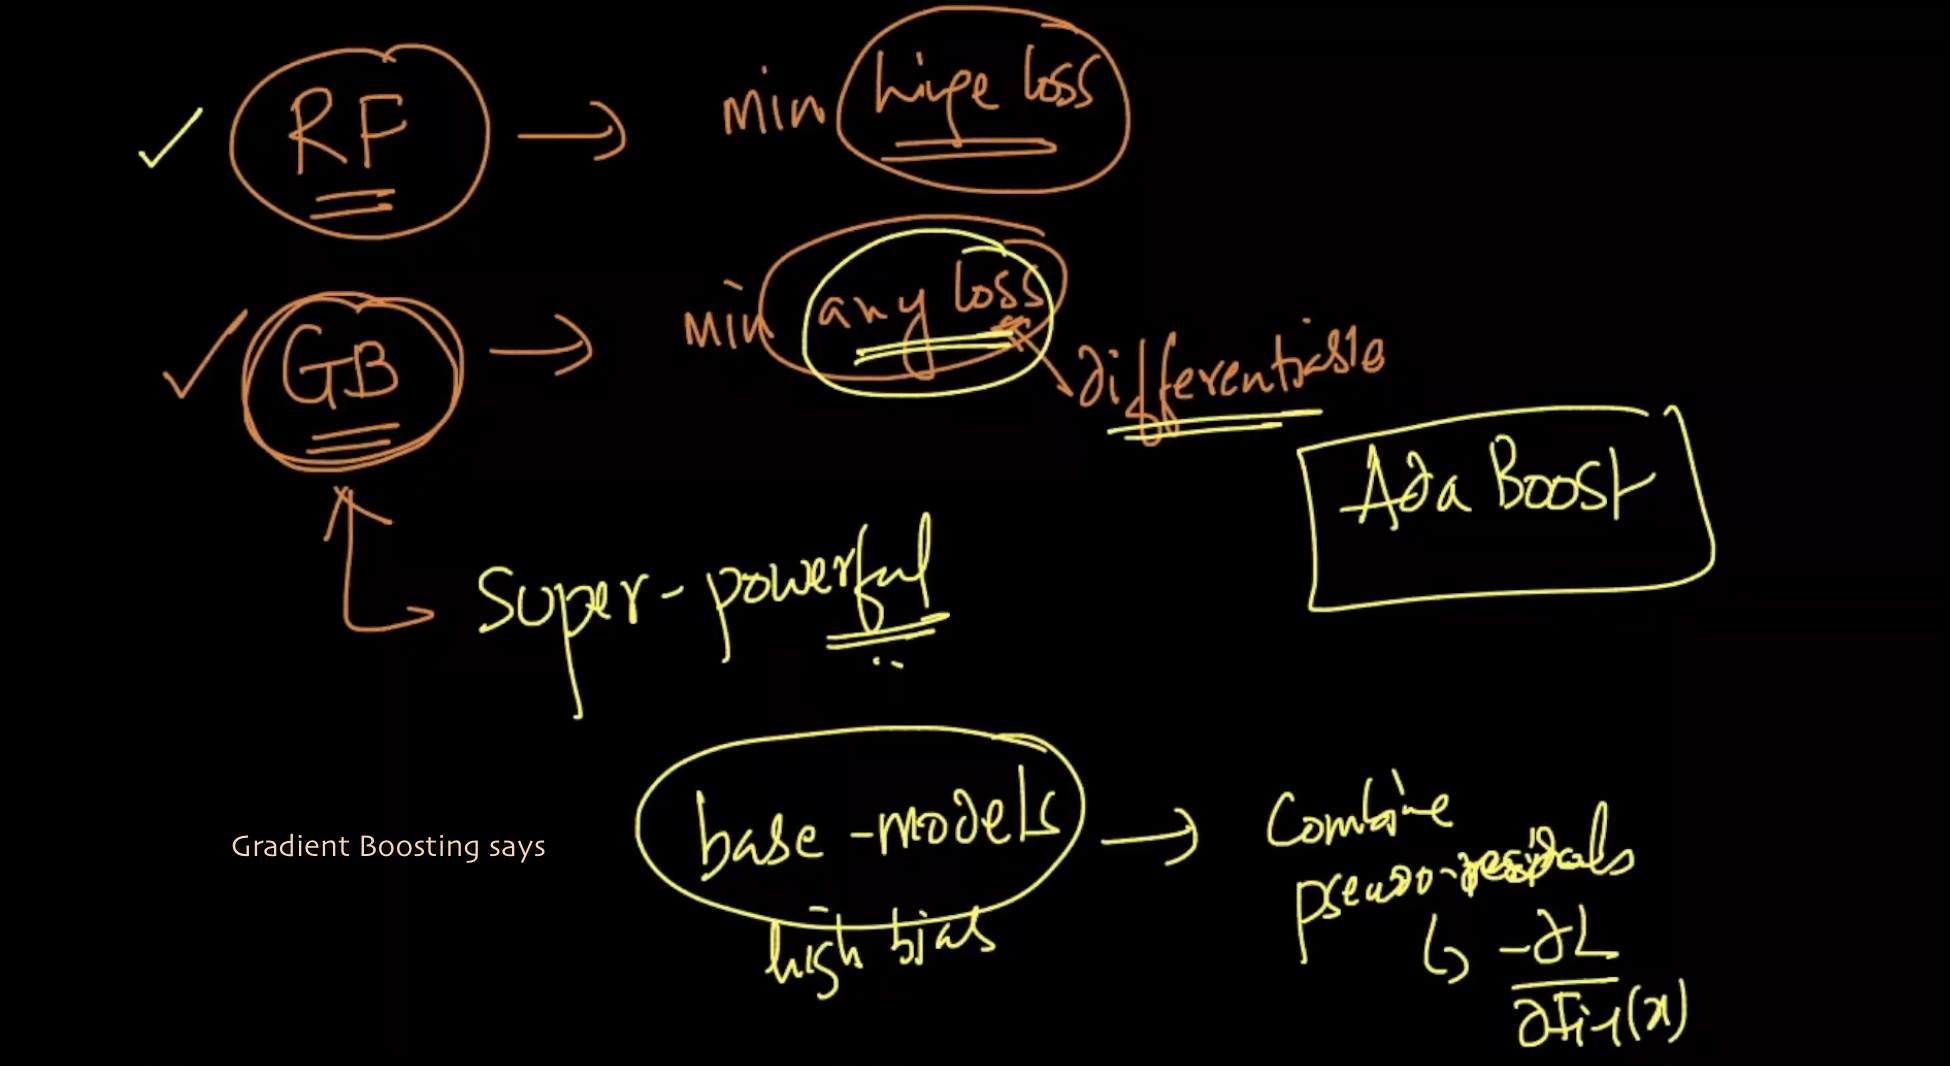 RF → min hinge loss
GB → min any loss
differentiable
Ada Boost
Super-powerful
Gradient Boosting says
base-models → Combine
pseudo-residuals
high bias
-∂L
∂Fi-1(x)